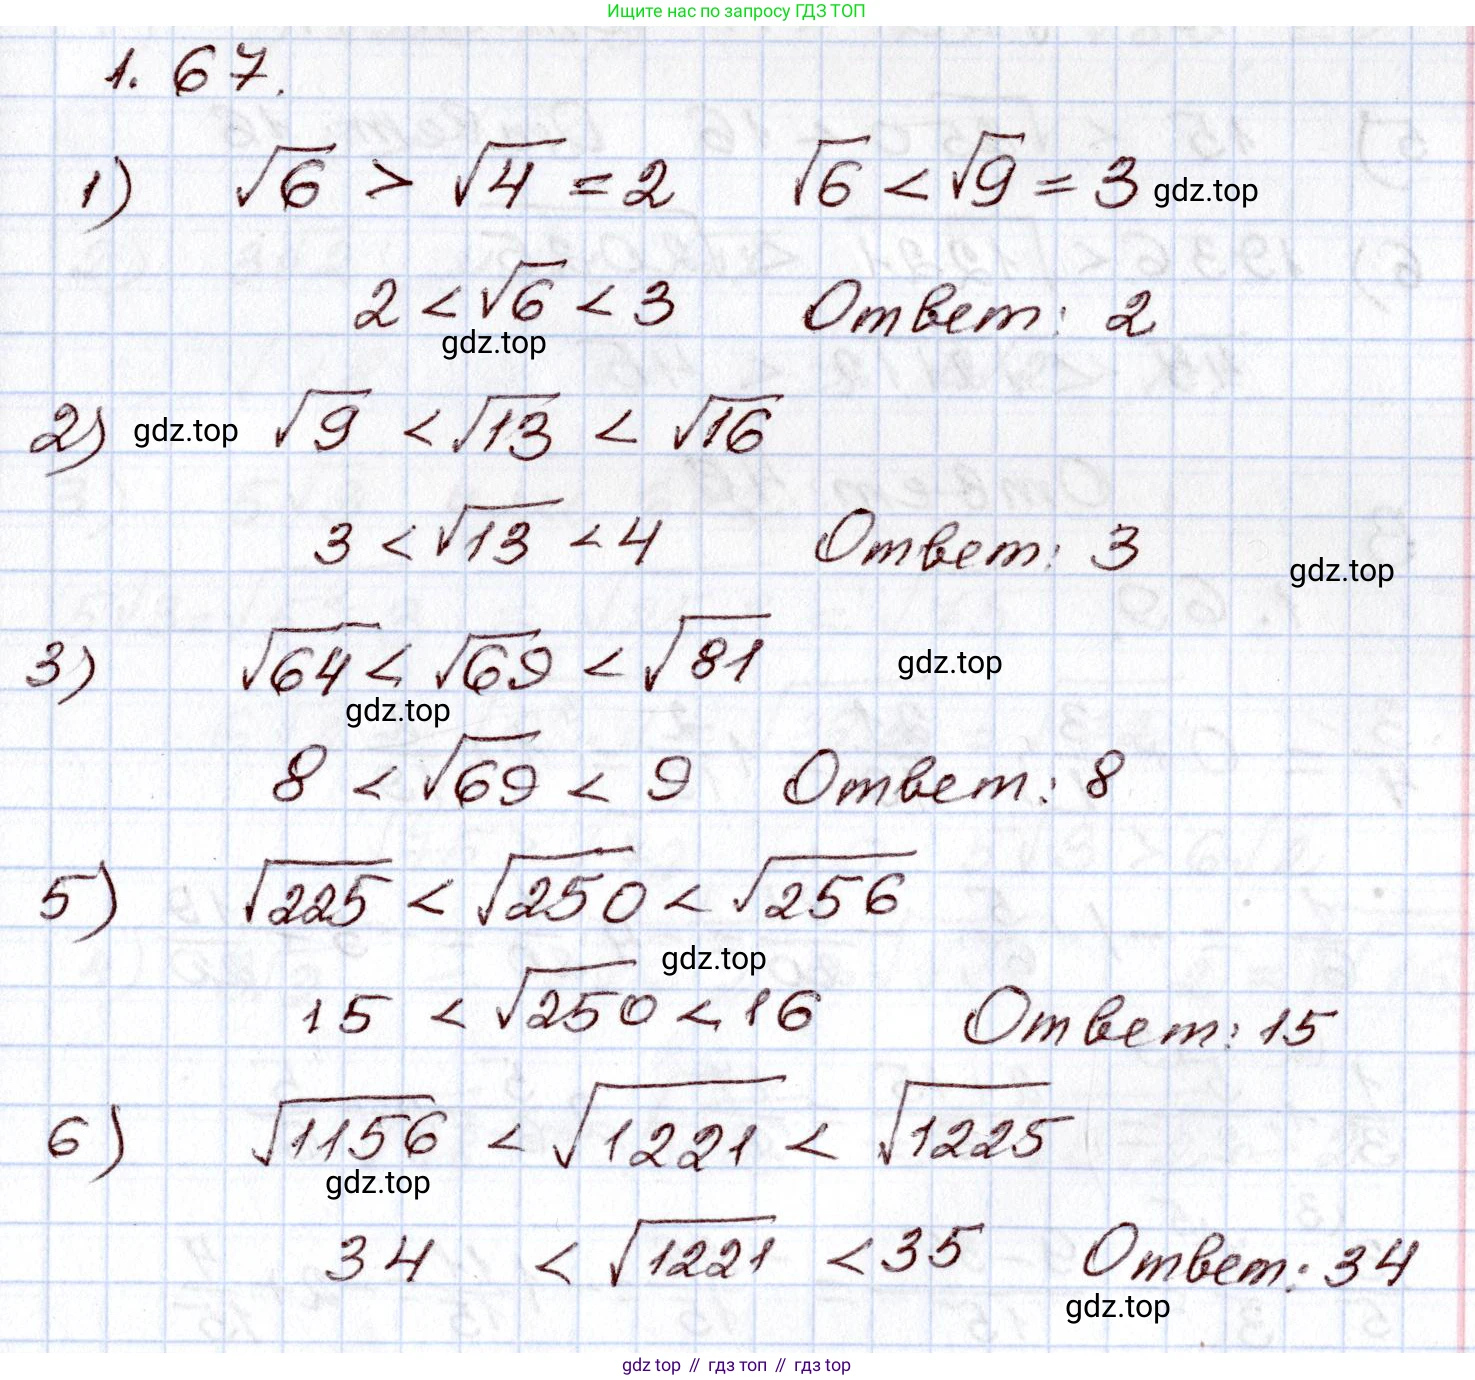 Ищите нас по запросу ГДЗ ТОП
1.67.
1) √6 > √4 = 2 √6 < √9 = 3 gdz.top
2 < √6 < 3 Ответ: 2
gdz.top
2) gdz.top √9 < √13 < √16
3 < √13 < 4 Ответ: 3
gdz.top
3) √64 < √69 < √81 gdz.top
gdz.top
8 < √69 < 9 Ответ: 8
5) √225 < √250 < √256
gdz.top
15 < √250 < 16 Ответ: 15
6) √1156 < √1221 < √1225
gdz.top
34 < √1221 < 35 Ответ: 34
gdz.top
gdz top // гдз топ // gdz top